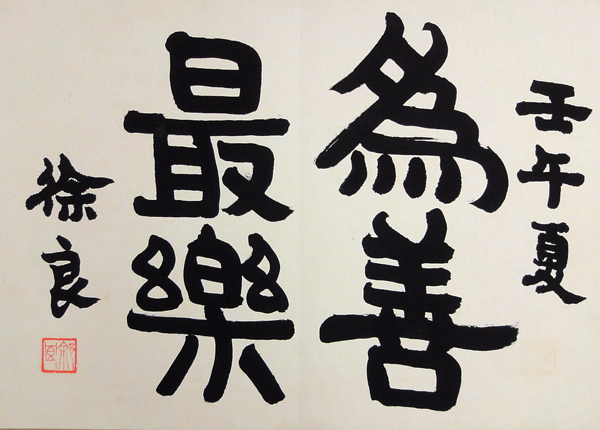 壬午夏
為善
最樂
徐良